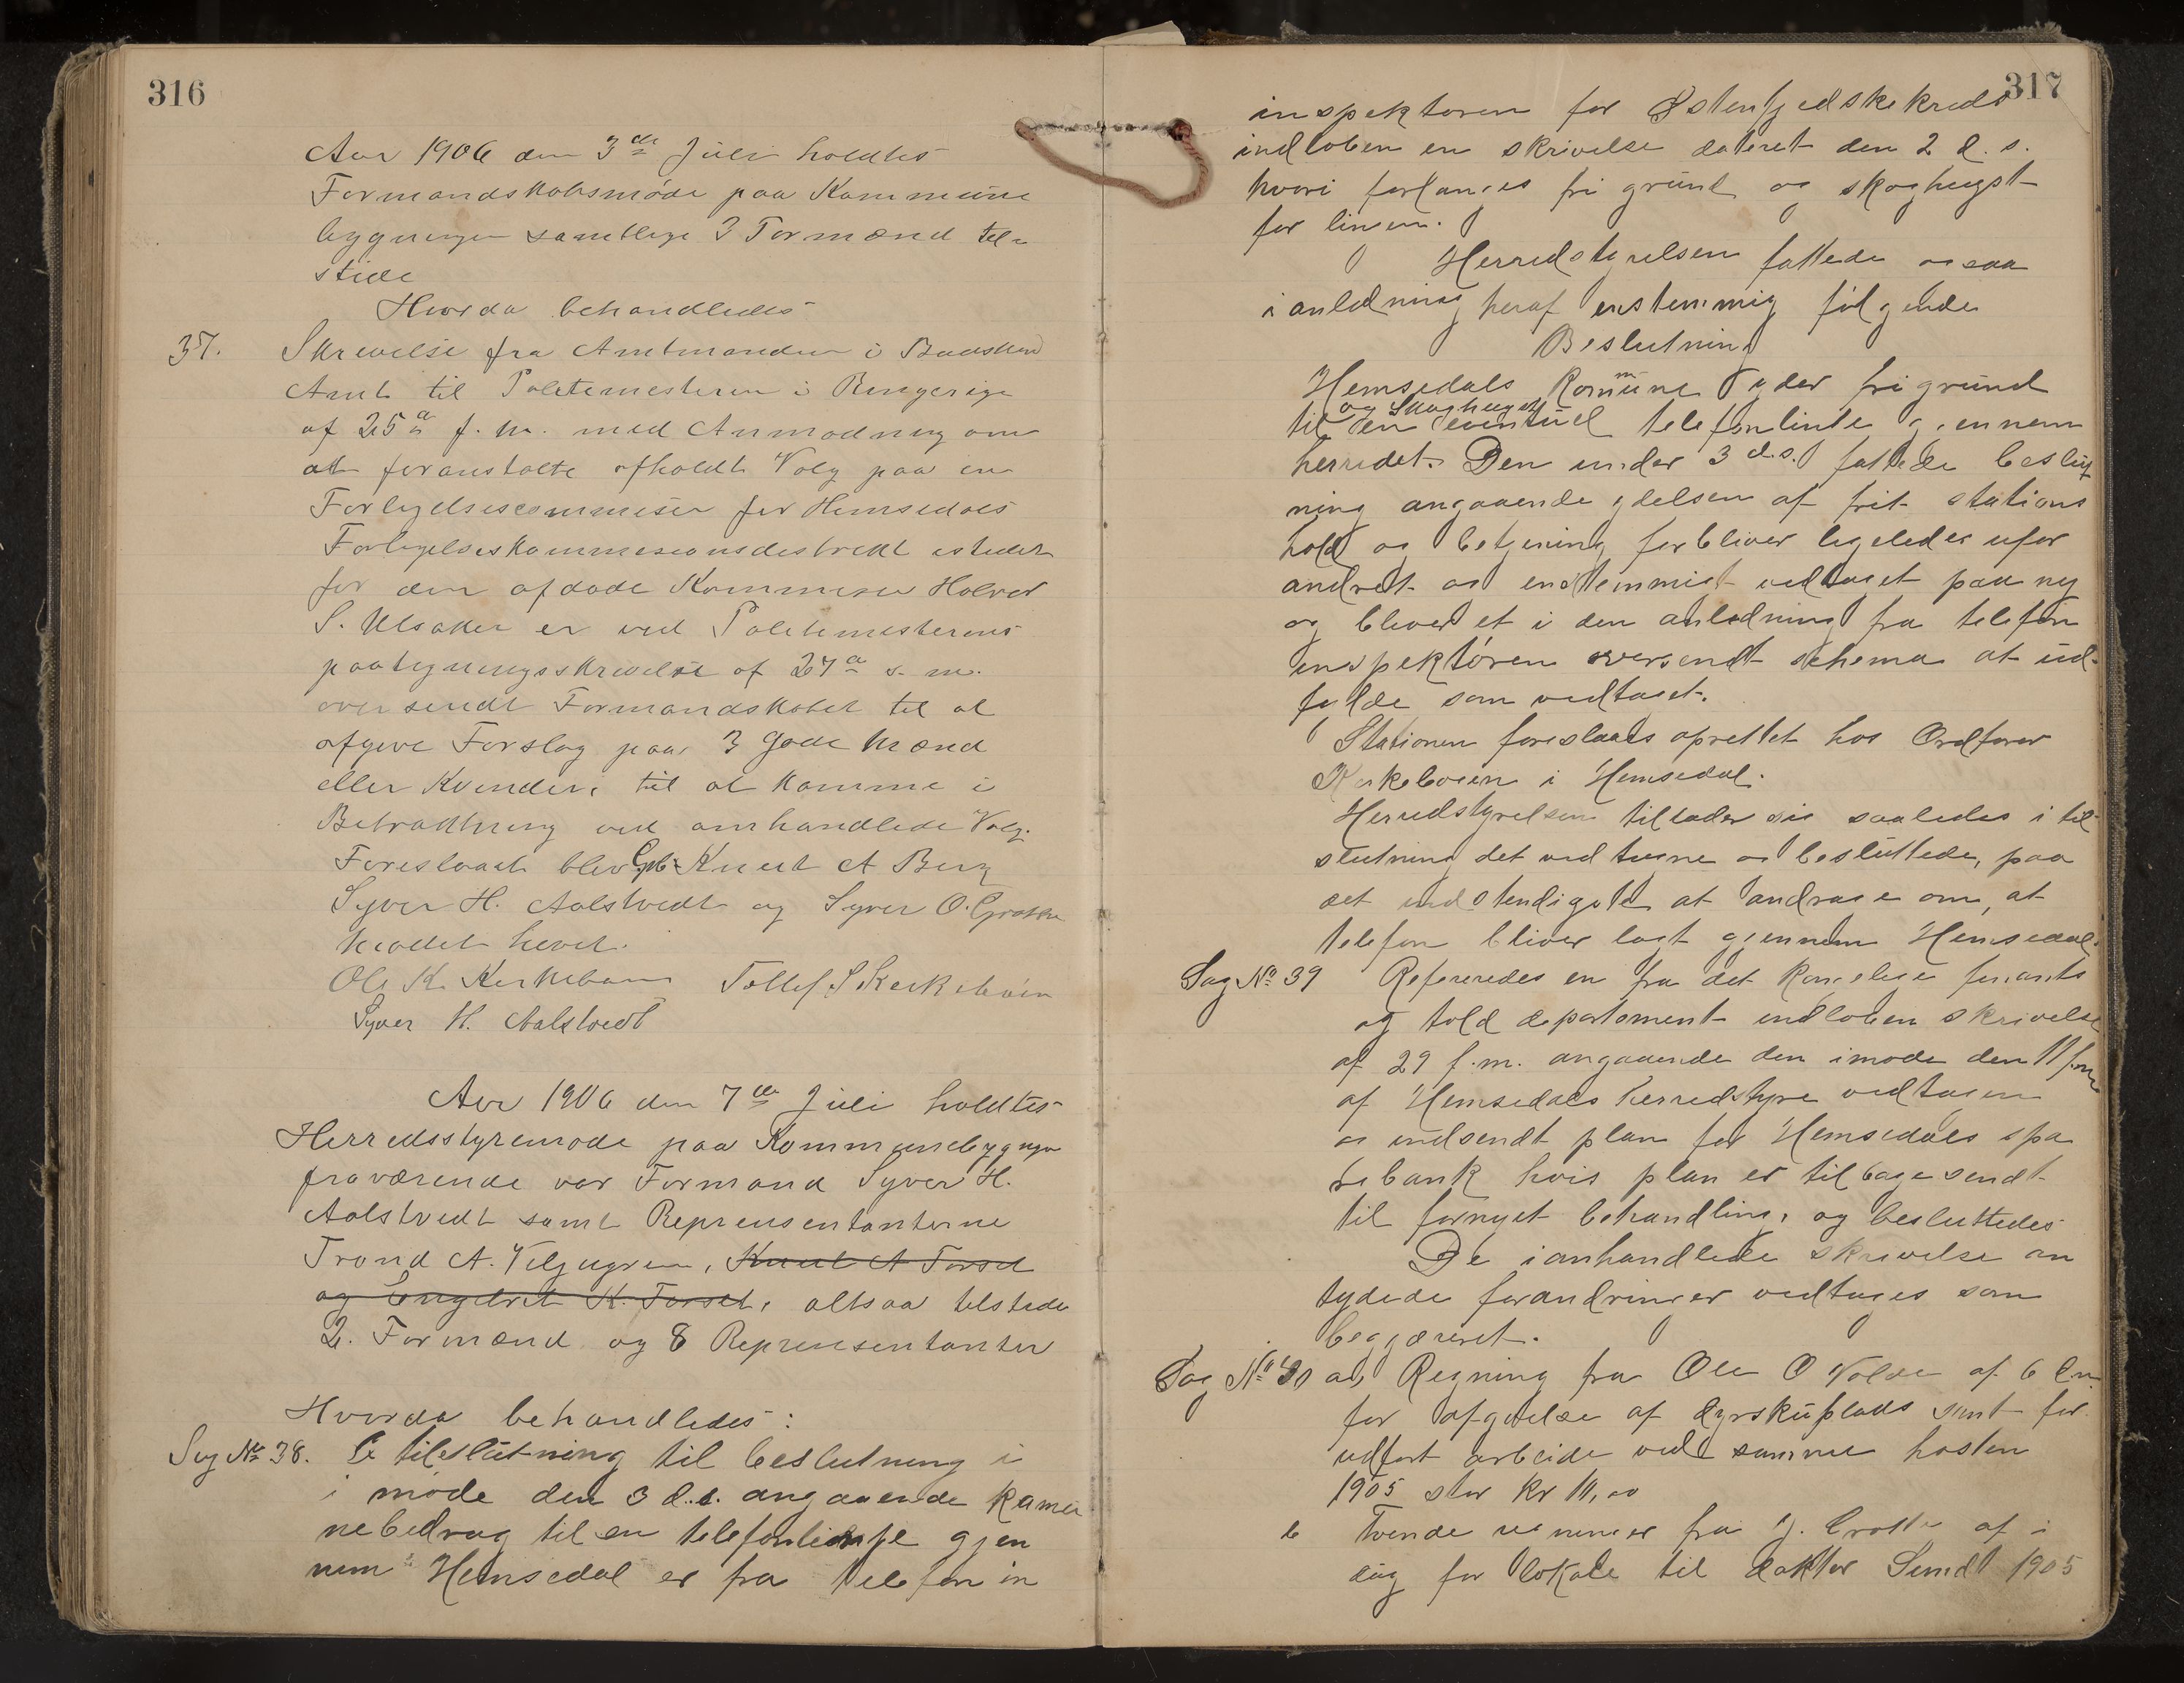 316
Aar 1906 den 3die Juli holdtes
Formandskabsmöde paa Kommune
bygningen samtlige 3 Formænd til-
stede
Hvorda behandledes
37. Skrivelse fra Amtmanden i Buskerud
Amt til Politimesteren i Ringerige
af 25de f. m. med Anmodning om
at foranstalte afholdt Valg paa en
Forligelsescommisær for Hemsedals
Forligelseskommissionsdistrikt istedet
for den afdøde Kommisær Halvor
S. Ulsaker er ved Politimesterens
paategningsskrivelse af 27de s. m.
oversendt Formandskabet til at
afgive Forslag paa 3 gode Mænd
eller Kvinder, til at komme i
Betragtning ved omhandlede Valg.
Foreslaat blev Knut A Berg
Syver H. Aalstvedt og Syver O. Grøthe
Mødet hævet.
Ole K. Kirkebøen Tollef S Kirkebøen
Syver H. Aalstvedt
Aar 1906 den 7de Juli holdtes
Herredsstyremøde paa Kommunebygnin
fraværende var Formand Syver H.
Aalstvedt samt Repræsentanterne
Trond A. Viljugrein, Knut A Torset
og Engebret K. Torset, altsaa tilstede
2. Formænd og 8 Repræsentanter
Hvorda behandledes:
Sag No 38. I tilslutning til beslutning i
i møde den 3 d.s. angaaende kommu
nebidrag til en telefonlinje gjen
nem Hemsedal er fra telefonin
317
inspektøren for Østenfjeldske kreds
indløben en skrivelse dateret den 2 d. s.
hvori forlanges fri grund og skoghugst
for linjen.
Herredstyrelsen fattede ogsaa
i anledning heraf enstemmig følgende
Beslutning
Hemsedals Komune yder fri grund
og Skoghugst
til en eventuel telefonlinie gjennem
herredet. Den under 3 d.s. fattede beslut
ning angaaende ydelsen af frit stations
hold og betjening forbliver ligeledes ufor
andret og enstemmigt vedtaget paa ny
og bliver et i den anledning fra telefon
inspektøren oversendt schema at ud-
fylde som vedtaget.
Stationen foreslaaes oprettet hos Ordfører
Kirkebøen i Hemsedal.
Herredstyrelsen tillader sig saaledes i til
slutning det ved tagne og besluttede, paa
det indstendigste at andrage om, at
telefon bliver lagt gjennem Hemsedal.
Sag No 39 Refereredes en fra det kongelige finants
og told departement indløben skrivelse
af 29 f.m. angaaende den i møde den 11 f.m.
af Hemsedals herredstyre vedtagen
og indsendt plan for Hemsedals spa
rebank hvis plan er tilbagesendt
til fornyet behandling, og besluttedes
De i anhandlede skrivelse an
tydede forandringer vedtages som
begjæret.
Sag No 40 a, Regning fra Ole O Volde af 6 d.m.
for afgivelse af dyrskuplads samt for
udført arbeide ved samme høsten
1905 stor Kr 11,00
b Tvende regninger fra J. Grøthe af i
dag for lokale til doktor Sundt 1905